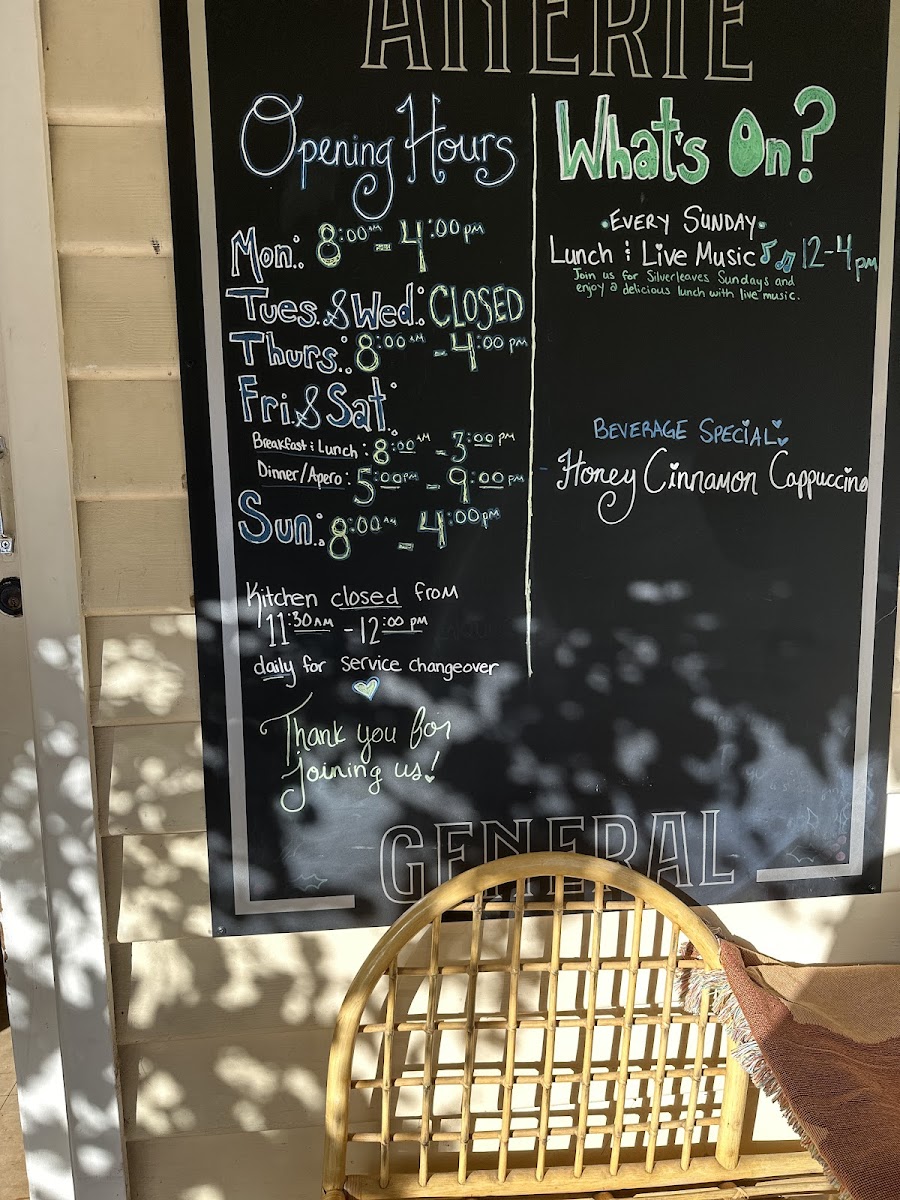 Opening Hours
Mon: 8:00AM - 4:00PM
Tues. & Wed: CLOSED
Thurs.: 8:00AM - 4:00PM
Fri. & Sat:
Breakfast & Lunch: 8:00AM - 3:00PM
Dinner/Apero: 5:00PM - 9:00PM
Sun.: 8:00AM - 4:00PM
Kitchen closed from
11:30AM - 12:00PM
daily for service changeover
Thank you for
joining us!
What's On?
EVERY SUNDAY
Lunch & Live Music 12-4pm
Join us for Silverleaves Sundays and
enjoy a delicious lunch with live music.
BEVERAGE SPECIAL
Honey Cinnamon Cappuccino
GENERAL